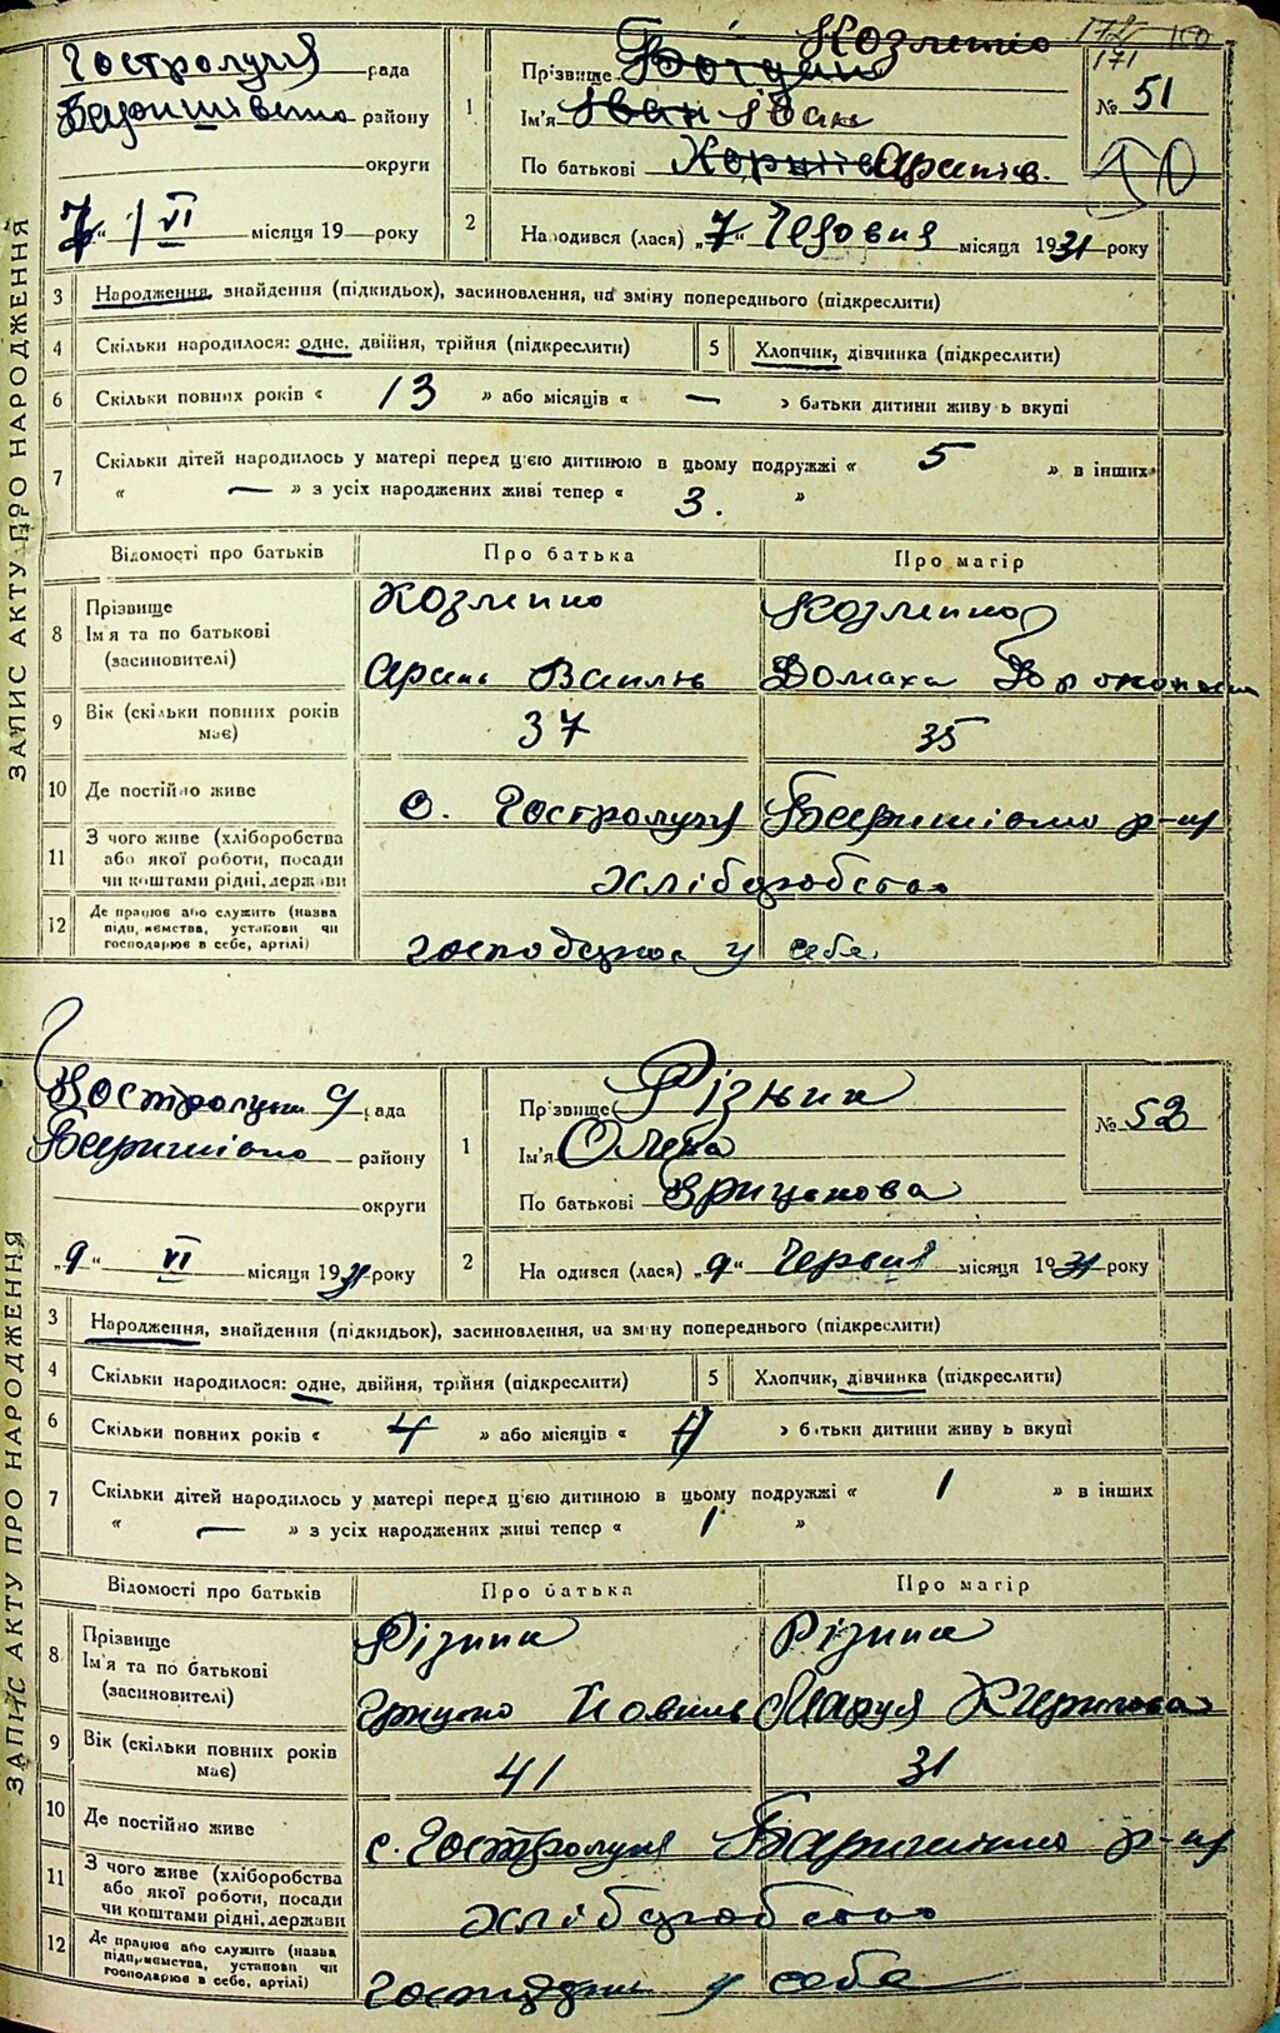 172 150
171
ЗАПИС АКТУ ПРО НАРОДЖЕННЯ
Гостролуччя рада
Баришівсько району
округи
7 / VI місяця 19 року
1
Прізвище Богдан Козленко
Ім'я Іван Іван
По батькові Корніїв
№ 51
2
Народився (лася) „7“ Червня місяця 1931 року
3 Народження, знайдення (підкидьох), засиновлення, на зміну попереднього (підкреслити)
4 Скільки народилося: одне, двійня, трійня (підкреслити) 5 Хлопчик, дівчинка (підкреслити)
6 Скільки повних років « 13 » або місяців « — » батьки дитини живуть вкупі
7 Скільки дітей народилось у матері перед цією дитиною в цьому подружжі « 5 » в інших
« — » з усіх народжених живі тепер « 3. »
Відомості про батьків Про батька Про матір
8 Прізвище
Ім'я та по батькові
(засиновителі)
Козленко Козленко
Василів Домаха
9 Вік (скільки повних років має) 37 35
10 Де постійно живе с. Гостролуччя Баришівсько р-ну
11 З чого живе (хліборобства
або якої роботи, посади
чи коштами рідні, держави
хліборобство
12 Де працює або служить (назва
підприємства, установи чи
господарює в себе, артілі)
у себе
ЗАПИС АКТУ ПРО НАРОДЖЕННЯ
Гостролуччя рада
Баришівсько району
округи
„9“ VI місяця 1931 року
1
Прізвище Різник
Ім'я Олена
По батькові Грицькова
№ 52
2
Народився (лася) „9“ Червня місяця 1931 року
3 Народження, знайдення (підкидьок), засиновлення, на зміну попереднього (підкреслити)
4 Скільки народилося: одне, двійня, трійня (підкреслити) 5 Хлопчик, дівчинка (підкреслити)
6 Скільки повних років « 4 » або місяців « » батьки дитини живуть вкупі
7 Скільки дітей народилось у матері перед цією дитиною в цьому подружжі « 1 » в інших
« — » з усіх народжених живі тепер « 1 »
Відомості про батьків Про батька Про матір
8 Прізвище
Ім'я та по батькові
(засиновителі)
Різник Різник
Грицько Маруся
9 Вік (скільки повних років має) 41 31
10 Де постійно живе с. Гостролуччя Баришівсько р-ну
11 З чого живе (хліборобства
або якої роботи, посади
чи коштами рідні, держави
хліборобство
12 Де працює або служить (назва
підприємства, установи чи
господарює в себе, артілі)
у себе